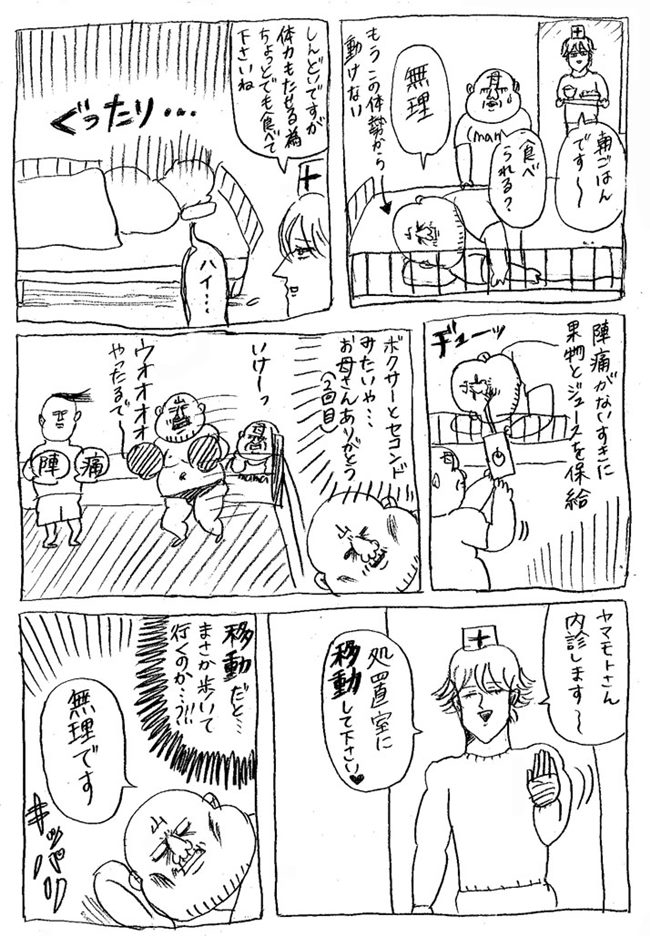 朝ごはん
です〜
食べ
られる?
母
mam
無理
もうこの体勢から
動けない
しんどいですが
体力もたせる為
ちょっとでも食べて
下さいね
ぐったり・・・
ハイ…
陣痛がないすきに
果物とジュースを保給
ヂューーッ
ボクサーとセコンド
みたいや…
お母さんありがとう
(2回目)
いけーっ
母
mama
ウオオオオ
やったるで〜
陣
痛
ヤマモトさん
内診します〜
処置室に
移動して下さい♥
移動だと…
まさか歩いて
行くのか…う!!!
無理です
キッパリ